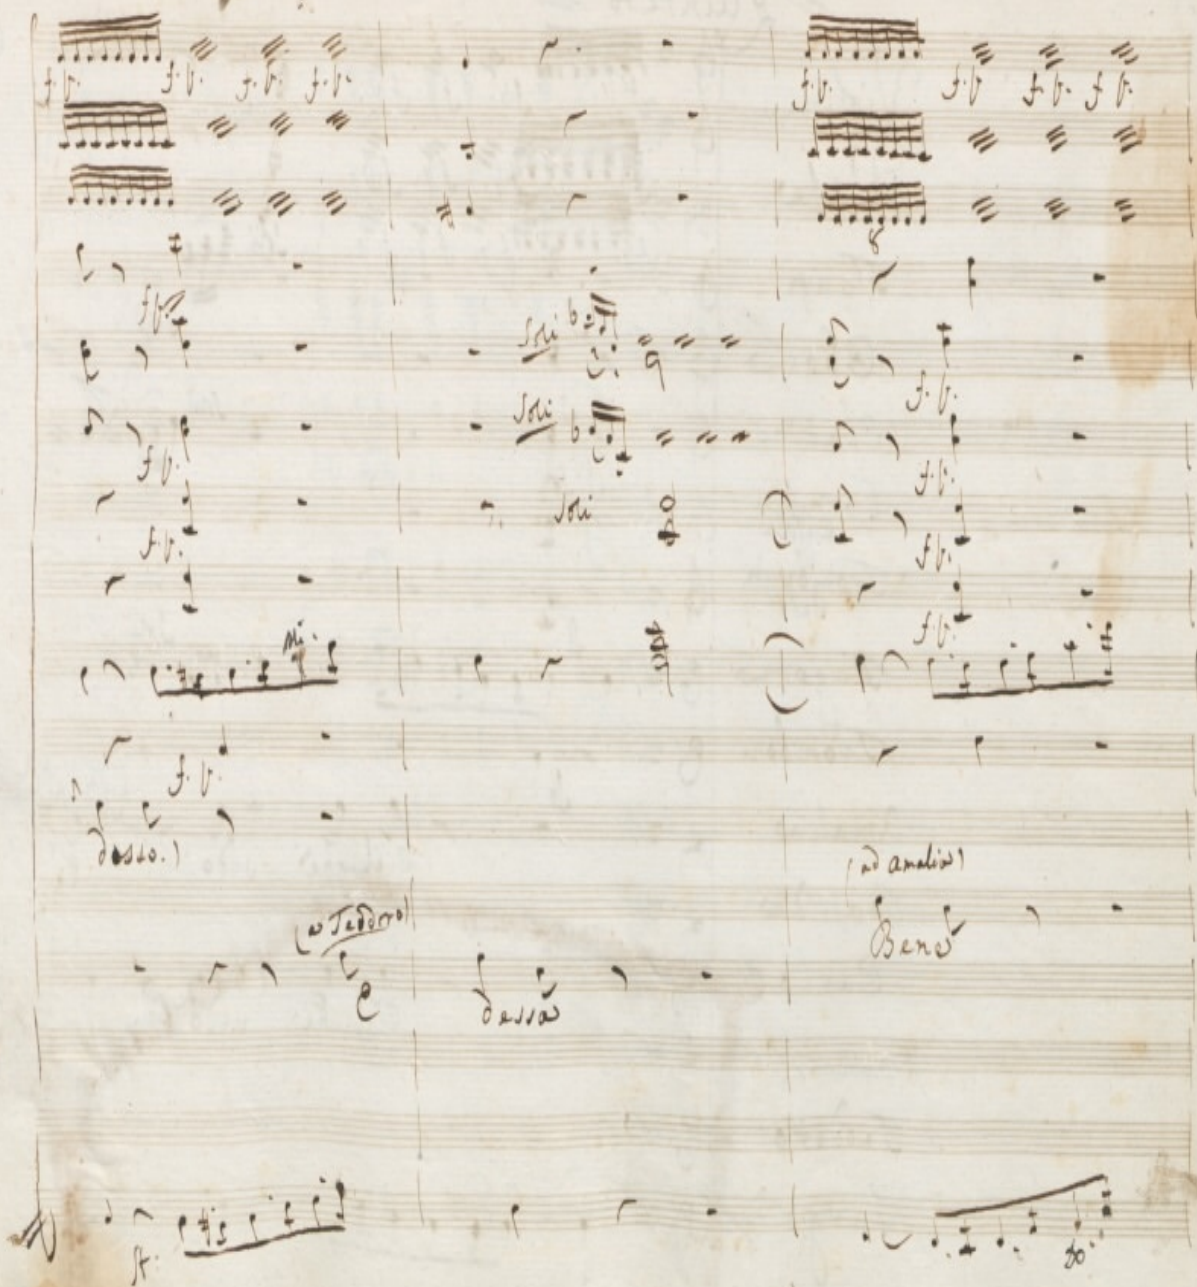 f.p. f.p. f.p. f.p. f.p. f.p. f.p. f.p.
f.p.
Soli
f.p.
Soli
f.p. f.p.
Soli
f.p. f.p.
f.p.
Mi.
f.p.
desso.)
(ad Amalia)
Bene
(a Teodoro)
E dessa